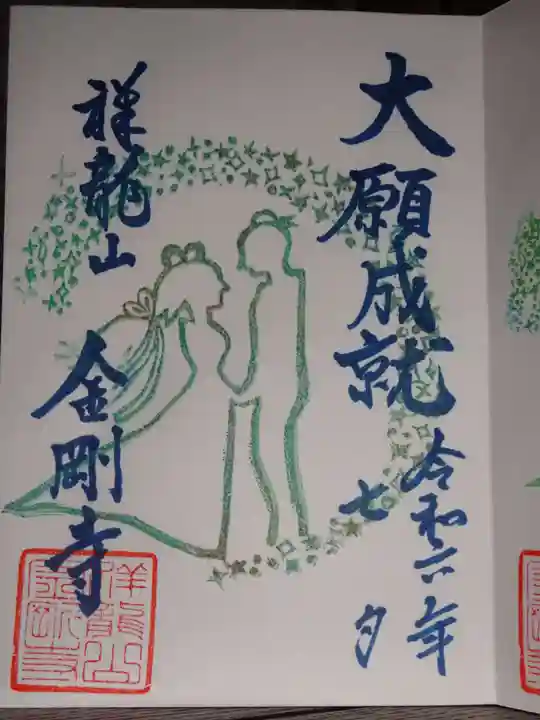 大願成就
令和六年
七夕
祥龍山
金剛寺
祥龍山
金剛寺